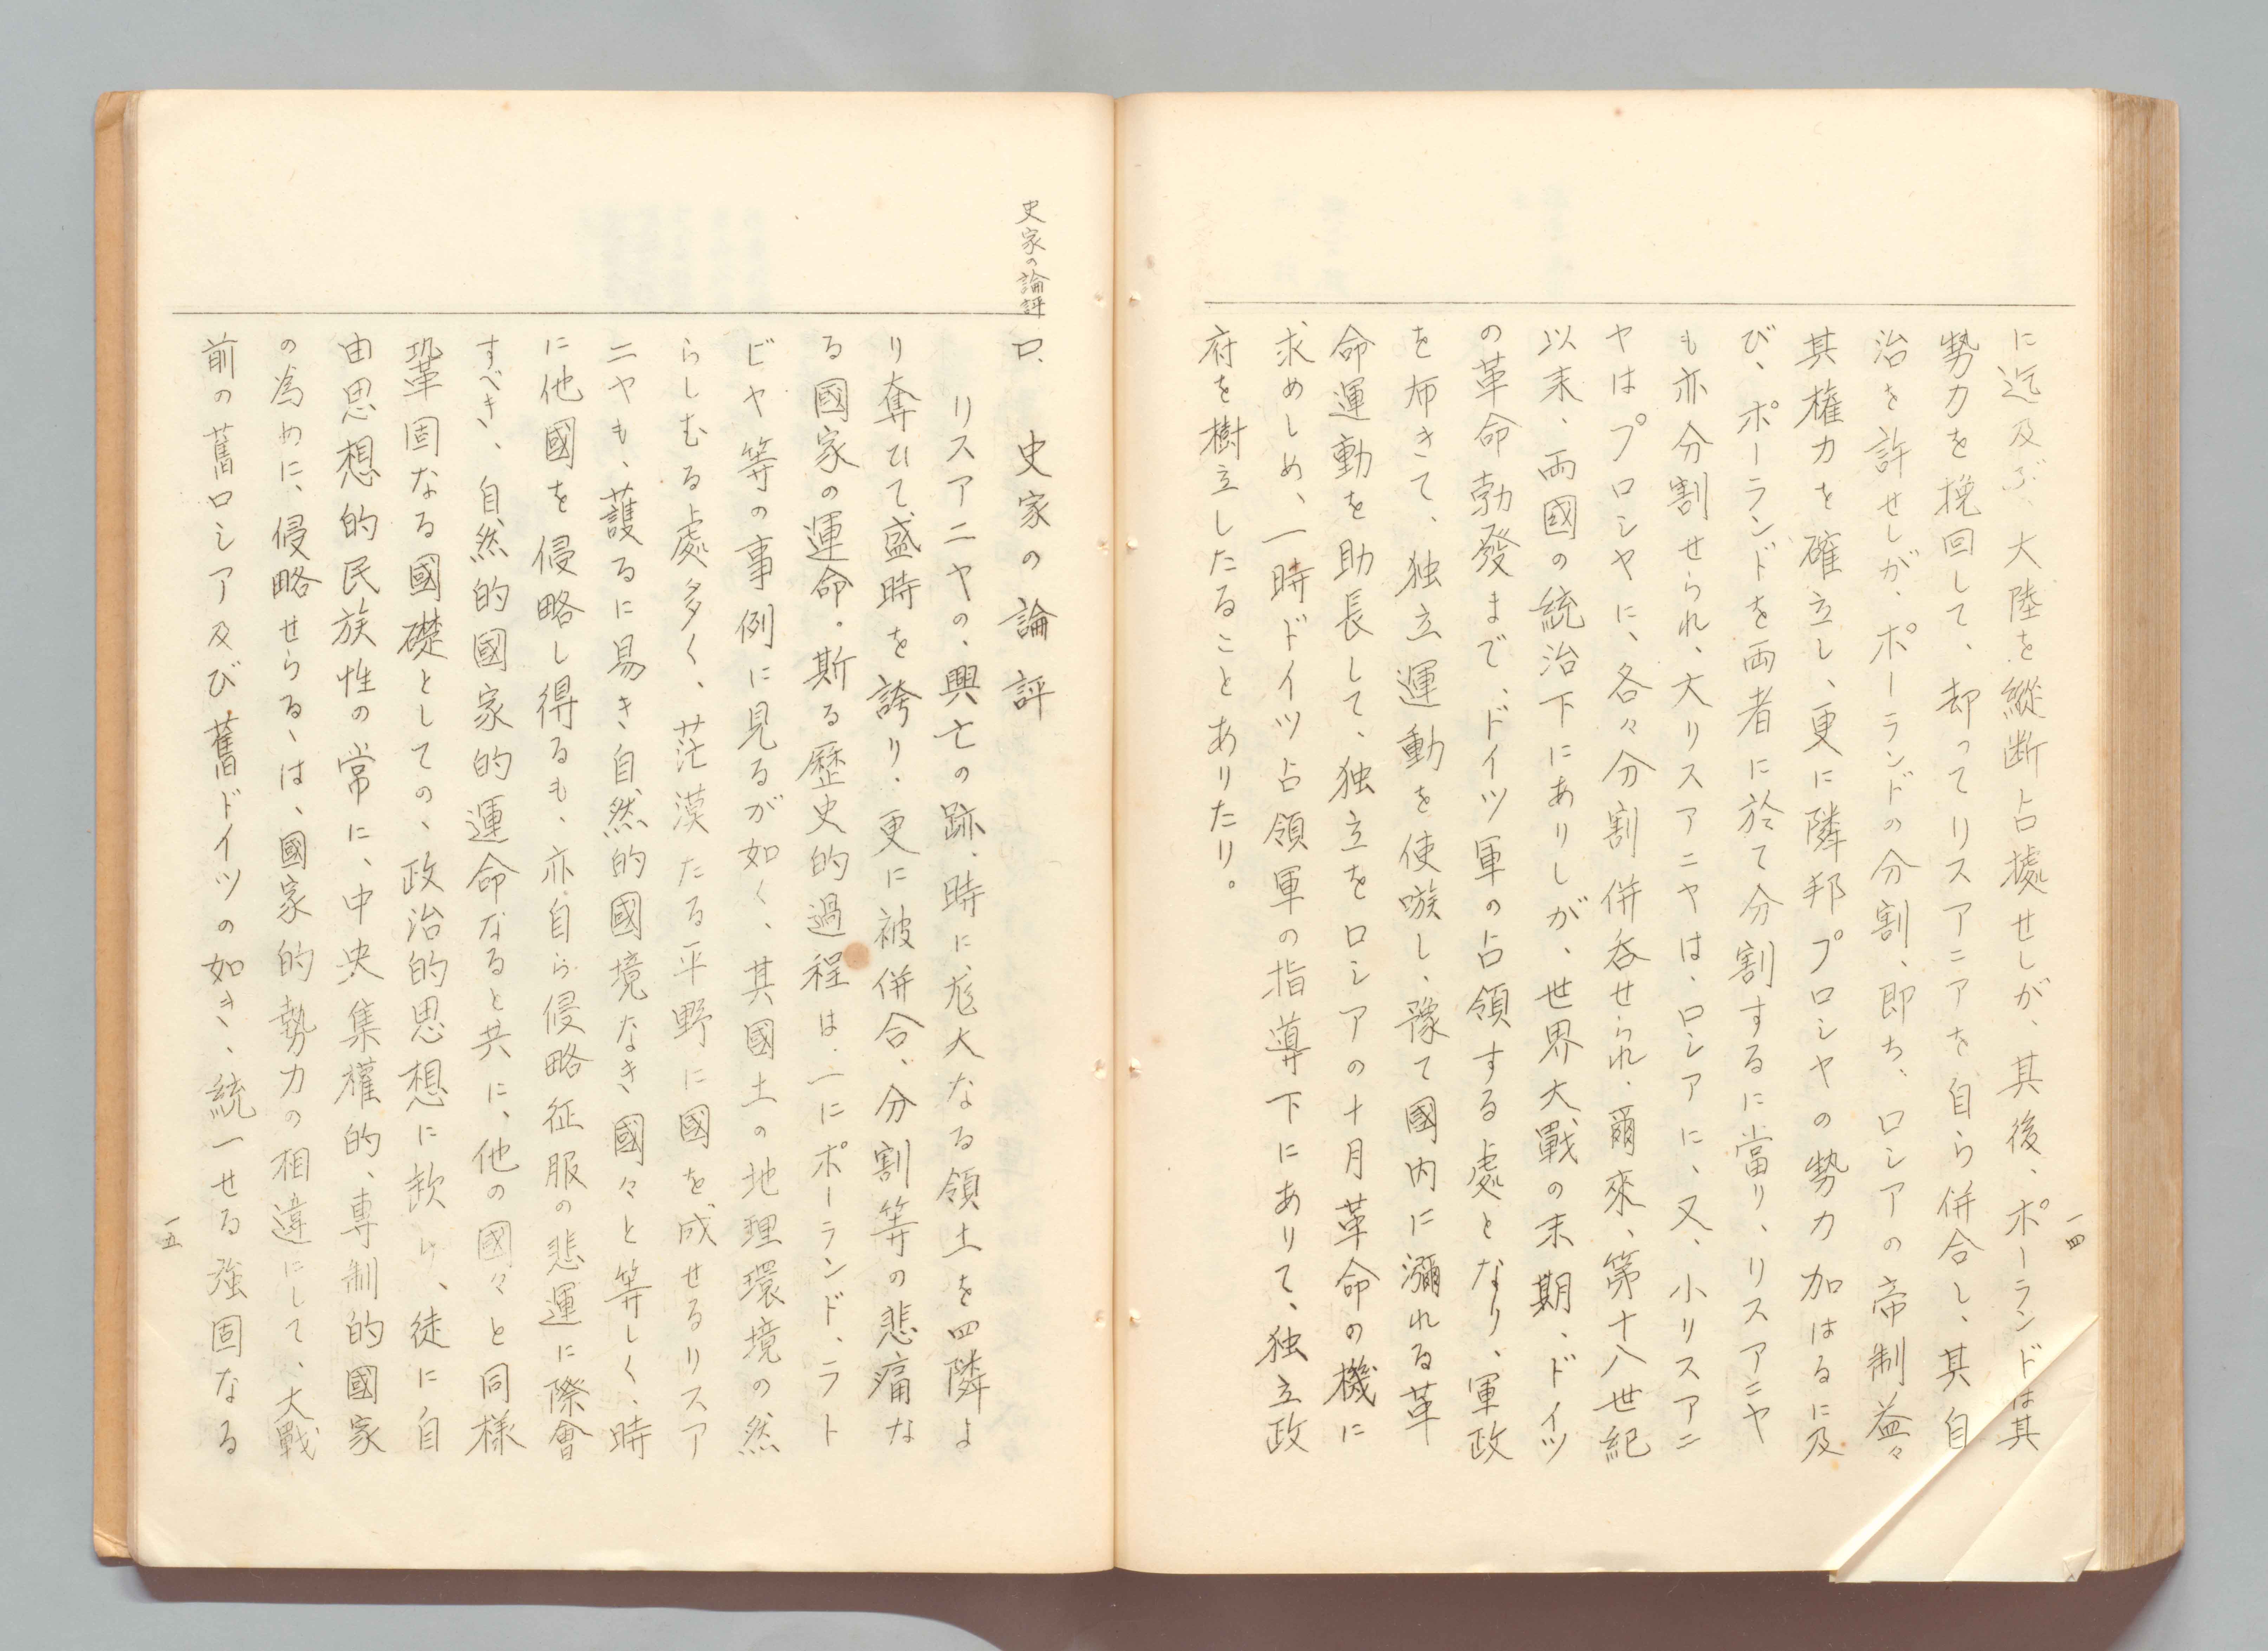 一四
に迄及ぶ、大陸を縦断占據せしが、其後、ポーランドは其
勢力を挽回して、却ってリスアニアを自ら併合し、其自
治を許せしが、ポーランドの分割、即ち、ロシアの帝制益々
其権力を確立し、更に隣邦プロシヤの勢力加はるに及
び、ポーランドを両者に於て分割するに當り、リスアニヤ
も亦分割せられ、大リスアニヤは、ロシアに、又、小リスアニ
ヤはプロシヤに、各々分割併呑せられ、爾來、第十八世紀
以末、両國の統治下にありしが、世界大戰の末期、ドイツ
の革命勃發まで、ドイツ軍の占領する處となり、軍政
を布きて、独立運動を使嗾し、豫て國内に瀰れる革
命運動を助長して、独立をロシアの十月革命の機に
求めしめ、一時ドイツ占領軍の指導下にありて、独立政
府を樹立したることありたり。
史家の論評
ロ、史家の論評
リスアニヤの、興亡の跡、時に、尨大なる領土を四隣よ
り奪ひて、盛時を誇り、更に被併合、分割等の悲痛な
る國家の運命。斯る歴史的過程は、一にポーランド、ラト
ビヤ等の事例に見るが如く、其國土の地理環境の然
らしむる處多く、茫漠たる平野に國を成せるリスア
ニヤも、護るに易き自然的國境なき國々と等しく、時
に他國を侵略し得るも、亦自ら侵略征服の悲運に際會
すべき、自然的國家的運命なると共に、他の國々と同様
鞏固なる國礎としての、政治的思想に欵け、徒に自
由思想的民族性の常に、中央集權的、専制的國家
の為めに、侵略せらるゝは、國家的勢力の相違にして、大戰
前の舊ロシア及び舊ドイツの如き、統一せる強固なる
一五